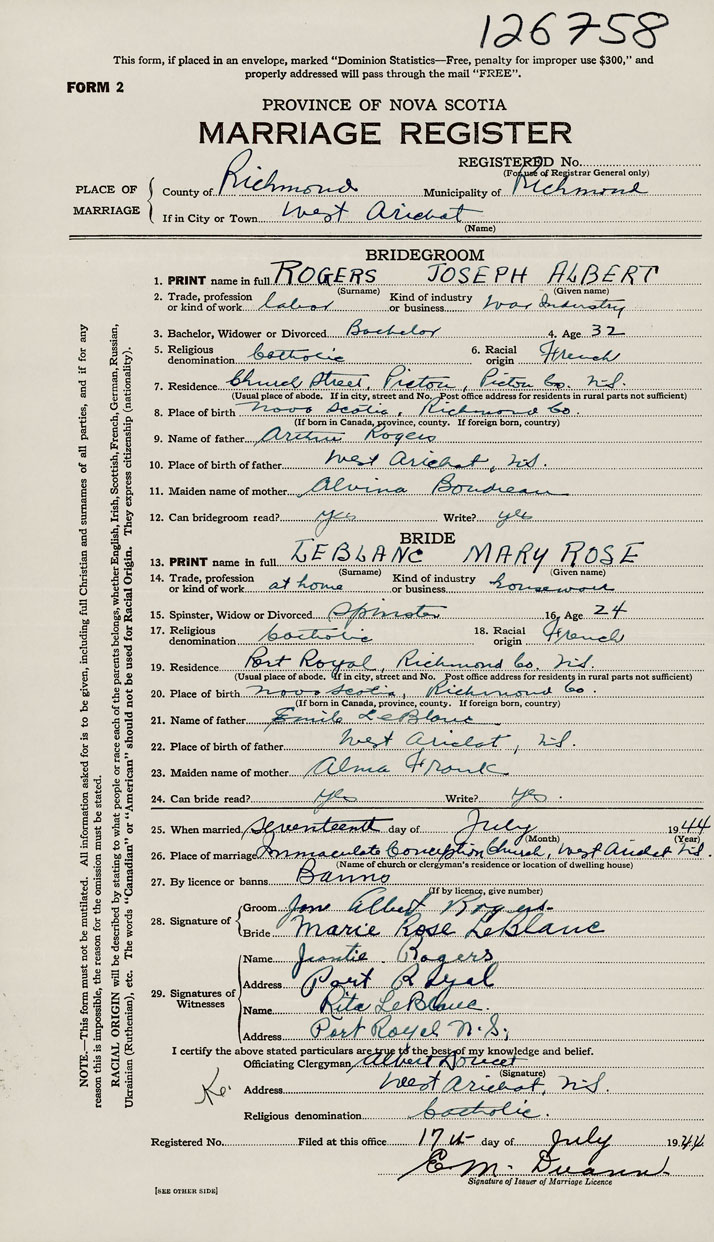 126758
This form, if placed in an envelope, marked "Dominion Statistics—Free, penalty for improper use $300," and
properly addressed will pass through the mail "FREE".
FORM 2
PROVINCE OF NOVA SCOTIA
MARRIAGE REGISTER
REGISTERED No.
(For use of Registrar General only)
PLACE OF MARRIAGE
County of Richmond Municipality of Richmond
If in City or Town West Arichat
(Name)
BRIDEGROOM
1. PRINT name in full ROGERS JOSEPH ALBERT
(Surname) (Given name)
2. Trade, profession or kind of work labor Kind of industry or business War Industry
3. Bachelor, Widower or Divorced Bachelor 4. Age 32
5. Religious denomination Catholic 6. Racial origin French
7. Residence Church Street, Pictou, Pictou Co. N.S.
(Usual place of abode. If in city, street and No. Post office address for residents in rural parts not sufficient)
8. Place of birth Nova Scotia, Richmond Co.
(If born in Canada, province, county. If foreign born, country)
9. Name of father Arthur Rogers
10. Place of birth of father West Arichat, N.S.
11. Maiden name of mother Alvina Boudreau
12. Can bridegroom read? yes Write? yes
BRIDE
13. PRINT name in full LEBLANC MARY ROSE
(Surname) (Given name)
14. Trade, profession or kind of work at home Kind of industry or business
15. Spinster, Widow or Divorced Spinster 16. Age 24
17. Religious denomination Catholic 18. Racial origin French
19. Residence Port Royal, Richmond Co. N.S.
(Usual place of abode. If in city, street and No. Post office address for residents in rural parts not sufficient)
20. Place of birth Nova Scotia, Richmond Co.
(If born in Canada, province, county. If foreign born, country)
21. Name of father Emile LeBlanc
22. Place of birth of father West Arichat, N.S.
23. Maiden name of mother Alma
24. Can bride read? yes Write? yes.
25. When married seventeenth day of July 1944
(Month) (Year)
26. Place of marriage Immaculate Conception Church, West Arichat N.S.
(Name of church or clergyman's residence or location of dwelling house)
27. By licence or banns Banns
(If by licence, give number)
28. Signature of
Groom Albert Rogers
Bride Marie Rose LeBlanc
29. Signatures of Witnesses
Name Rogers
Address Port Royal
Name Rita LeBlanc.
Address Port Royal N.S.
I certify the above stated particulars are true to the best of my knowledge and belief.
Officiating Clergyman Albert Doucet
(Signature)
Address West Arichat, N.S.
Religious denomination Catholic.
Registered No. Filed at this office 17th day of July 1944
E. M.
Signature of Issuer of Marriage Licence
[SEE OTHER SIDE]
NOTE.—This form must not be mutilated. All information asked for is to be given, including full Christian and surnames of all parties, and if for any
reason this is impossible, the reason for the omission must be stated.
RACIAL ORIGIN will be described by stating to what people or race each of the parents belongs, whether English, Irish, Scottish, French, German, Russian,
Ukrainian (Ruthenian), etc. The words "Canadian" or "American" should not be used for Racial Origin. They express citizenship (nationality).